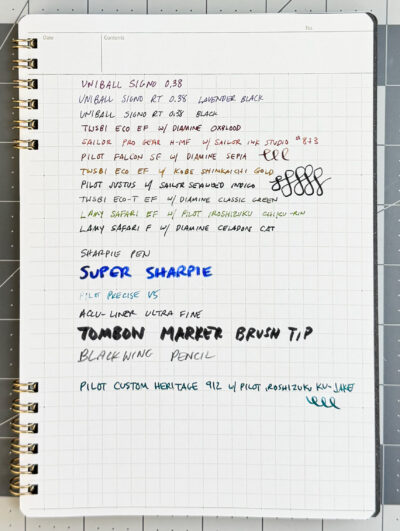 No.
Date
Contents
UNIBALL SIGNO 0.38
UNIBALL SIGNO RT 0.38 LAVENDER BLACK
UNIBALL SIGNO RT 0.38 BLACK
TWSBI ECO EF W/ DIAMINE OXBLOOD
SAILOR PRO GEAR H-MF W/ SAILOR INK STUDIO #873
PILOT FALCON SF W/ DIAMINE SEPIA
TWSBI ECO EF W/ KOBE SHINKAICHI GOLD
PILOT JUSTUS W/ SAILOR SEAWEED INDIGO
TWSBI ECO-T EF W/ DIAMINE CLASSIC GREEN
LAMY SAFARI EF W/ PILOT IROSHIZUKU CHIKU-RIN
LAMY SAFARI F W/ DIAMINE CELADON CAT
SHARPIE PEN
SUPER SHARPIE
PILOT PRECISE V5
ACCU-LINER ULTRA FINE
TOMBOW MARKER BRUSH TIP
BLACKWING PENCIL
PILOT CUSTOM HERITAGE 912 W/ PILOT IROSHIZUKU KU-JAKU